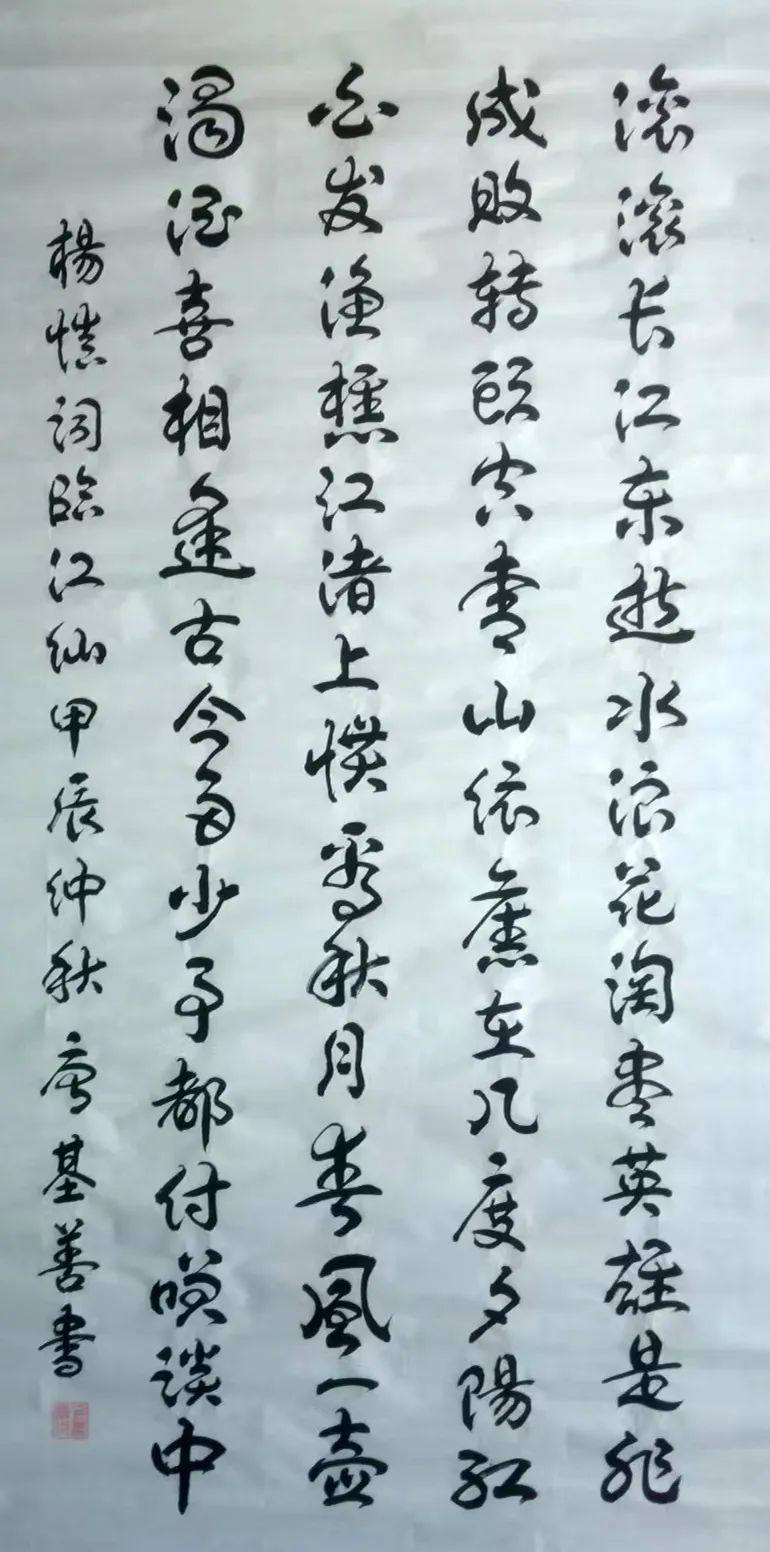 滚滚长江东逝水浪花淘尽英雄是非
成败转头空青山依旧在几度夕陽红
白发渔樵江渚上惯看秋月春風一壶
濁酒喜相逢古今多少事都付笑談中
楊慎詞臨江仙甲辰仲秋唐基善書